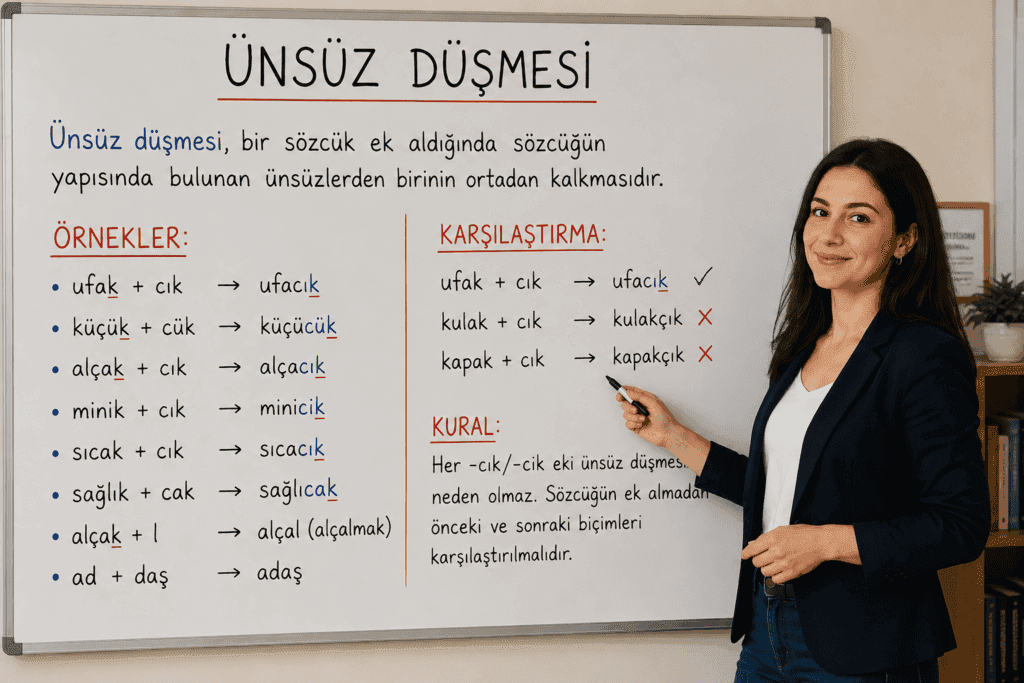 ÜNSÜZ DÜŞMESİ
Ünsüz düşmesi, bir sözcük ek aldığında sözcüğün
yapısında bulunan ünsüzlerden birinin ortadan kalkmasıdır.
ÖRNEKLER:
• ufak + cık → ufacık
• küçük + cük → küçücük
• alçak + cık → alçacık
• minik + cik → minicik
• sıcak + cık → sıcacık
• sağlık + cak → sağlıcak
• alçak + l → alçal (alçalmak)
• ad + daş → adaş
KARŞILAŞTIRMA:
ufak + cık → ufacık ✓
kulak + cık → kulakçık ✗
kapak + cık → kapakçık ✗
KURAL:
Her -cık/-cik eki ünsüz
neden olmaz. Sözcüğün ek almadan
önceki ve sonraki biçimleri
karşılaştırılmalıdır.